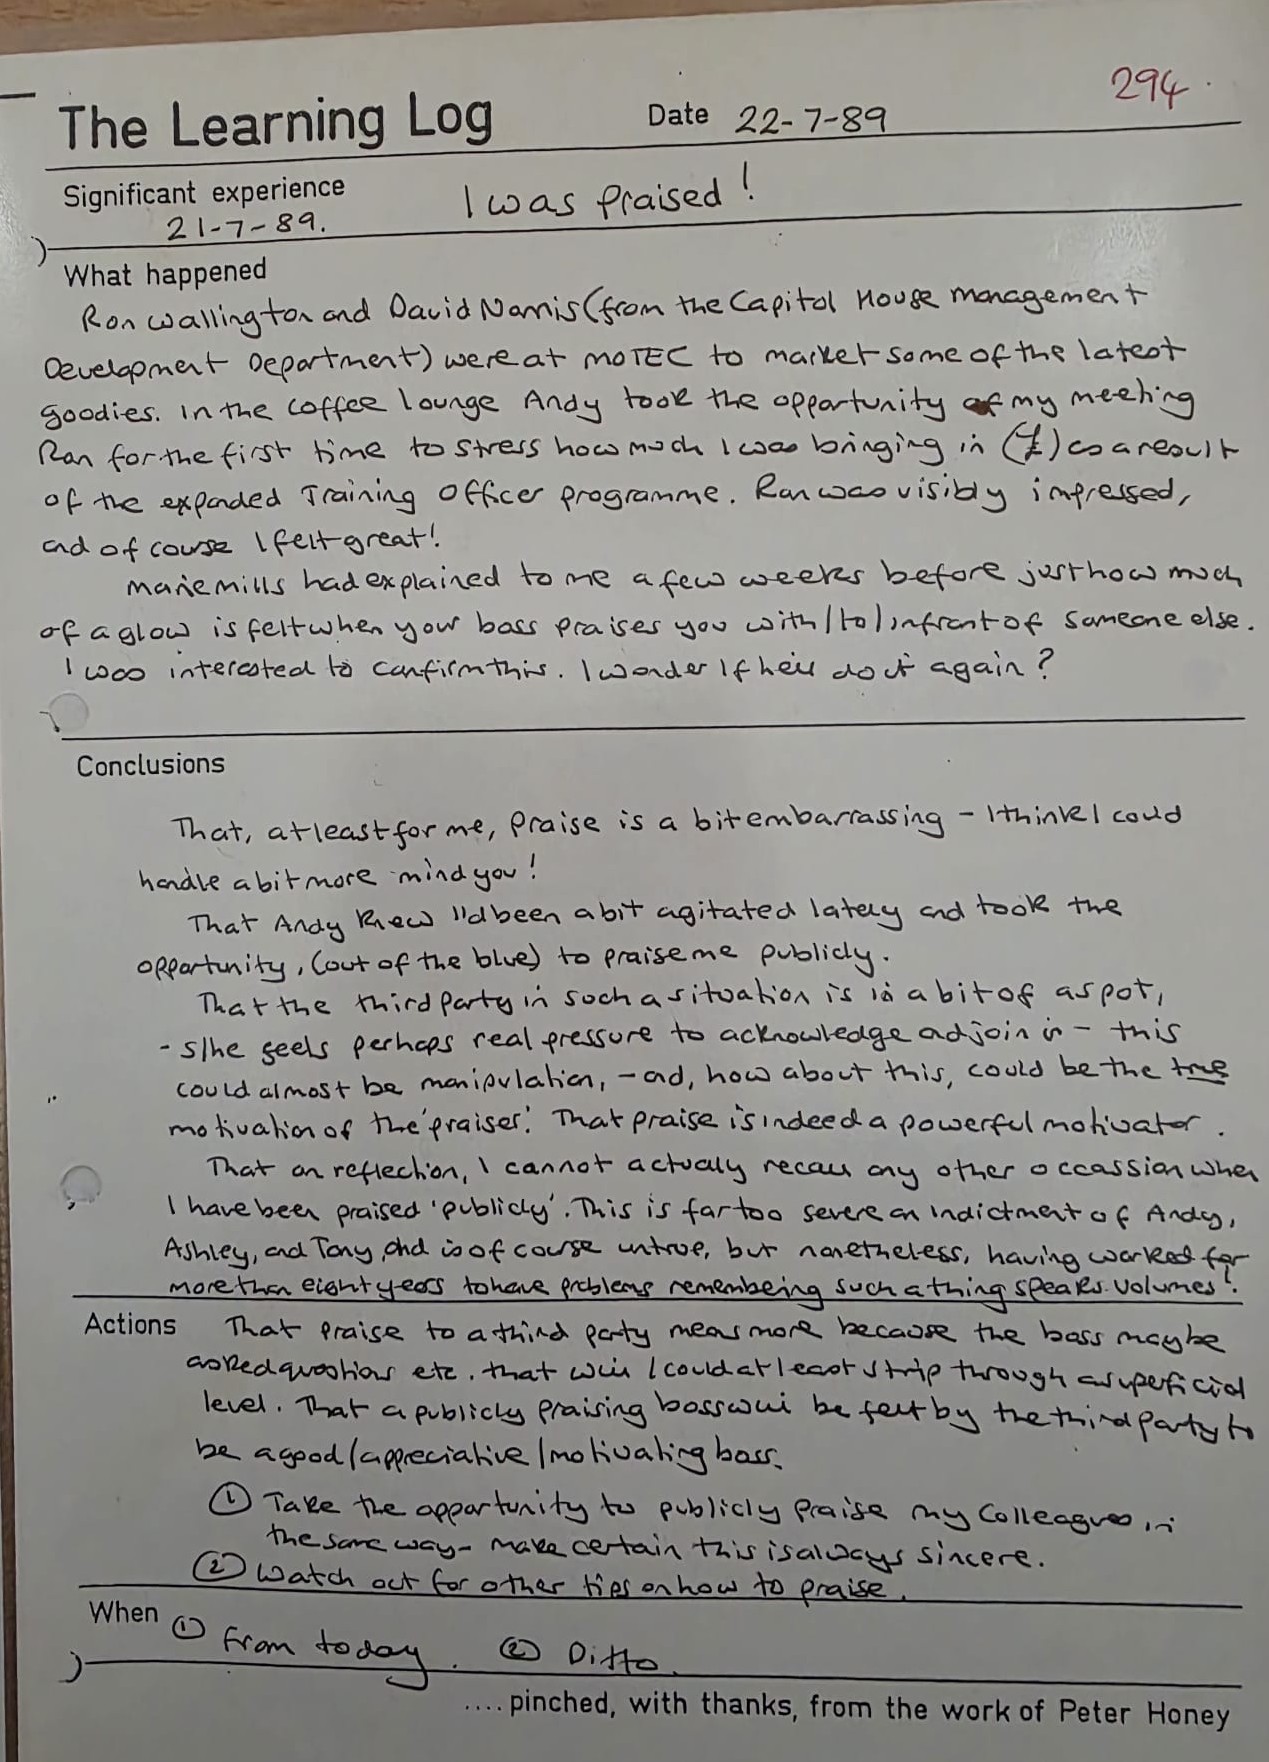 294.
The Learning Log Date 22-7-89
Significant experience I was praised!
21-7-89.
What happened
Ron Wallington and David Norris (from the Capitol House Management
Development Department) were at MOTEC to market some of the latest
goodies. In the coffee lounge Andy took the opportunity of my meeting
Ron for the first time to stress how much I was bringing in (£) as a result
of the expanded Training Officer programme. Ron was visibly impressed,
and of course I felt great!
Marie Mills had explained to me a few weeks before just how much
of a glow is felt when your boss praises you with/to/infront of someone else.
I was interested to confirm this. I wonder if he'll do it again?
Conclusions
That, at least for me, praise is a bit embarrassing - I think I could
handle a bit more mind you!
That Andy knew I'd been a bit agitated lately and took the
opportunity, (out of the blue) to praise me publicly.
That the third party in such a situation is in a bit of a spot,
- s/he feels perhaps real pressure to acknowledge and join in - this
could almost be manipulation, - and, how about this, could be the true
motivation of the 'praiser'. That praise is indeed a powerful motivator.
That on reflection, I cannot actually recall any other occassion when
I have been praised 'publicly'. This is far too severe an indictment of Andy,
Ashley, and Tony, and is of course untrue, but nonetheless, having worked for
more than eight years to have problems remembering such a thing speaks volumes!
Actions That praise to a third party means more because the boss maybe
asked questions etc. that will/could at least strip through a superficial
level. That a publicly praising boss will be felt by the third party to
be a good/appreciative/motivating boss.
① Take the opportunity to publicly praise my colleagues in
the same way - make certain this is always sincere.
② Watch out for other tips on how to praise.
When ① From today. ② Ditto.
.... pinched, with thanks, from the work of Peter Honey